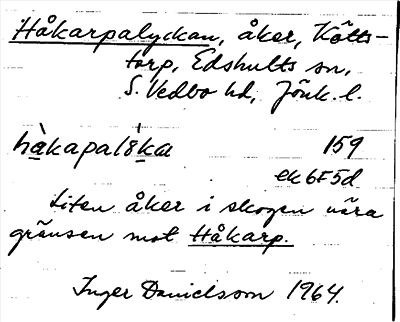 Håkarpalyckan, åker, Kötts-
torp, Edshults sn,
S. Vedbo hd, Jönk. l.
hàkapalỳka 159
ek 6F5d
Liten åker i skogen nära
gränsen mot Håkarp.
Inger Danielsson 1964.